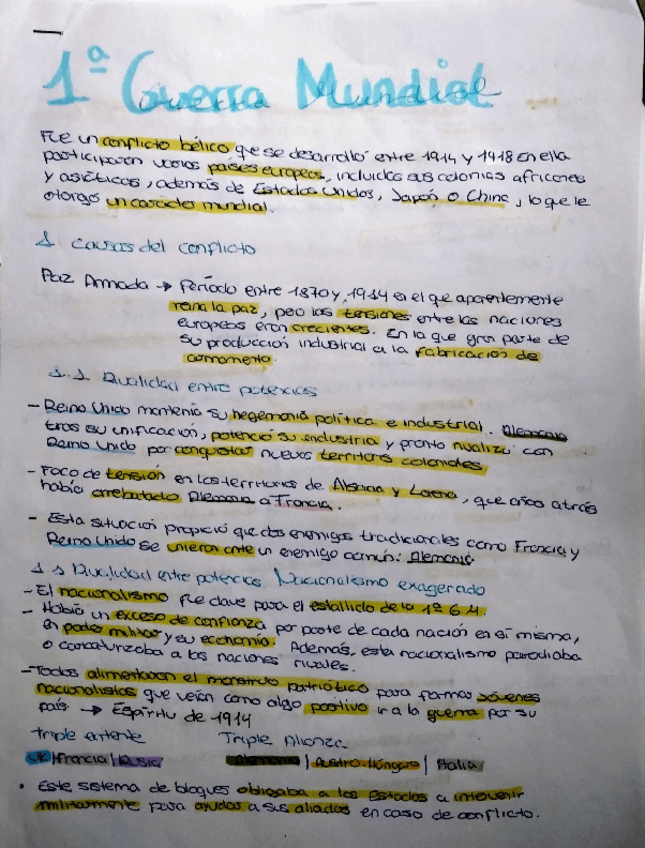 1ª Guerra Mundial
Fue un conflicto bélico que se desarrolló entre 1914 y 1918 en ella
participaron varios países europeos, incluidas sus colonias africanas
y asiáticas, además de Estados Unidos, Japón o China, lo que le
otorgo un carácter mundial.
1. Causas del conflicto
Paz Armada → Período entre 1870 y 1914 en el que aparentemente
reina la paz, pero las tensiones entre las naciones
europeas eran crecientes. En la que gran parte de
su producción industrial a la fabricación de
armamento.
1.1 Rivalidad entre potencias
- Reino Unido mantenía su hegemonía política e industrial. Alemania
tras su unificación, potenció su industria y pronto rivalizó con
Reino Unido por conquistar nuevos territoris coloniales.
- Foco de tensión en los territorios de Alsacia y Lorena, que años atrás
había arrebatado Alemania a Francia.
- Esta situación propició que dos enemigos tradicionales como Francia y
Reino Unido se unieran ante un enemigo común: Alemania
1.2 Rivalidad entre potencias Nacionalismo exagerado
- El nacionalismo fue clave para el estallido de la 1ª G.M.
- Había un exceso de confianza por parte de cada nación en sí misma,
en poder militar y su economía. Además, este nacionalismo parodiaba
o caricaturizaba a las naciones rivales.
- Todos alimentaron el monstruo patriótico para formar jóvenes
nacionalistas que veían como algo positivo ir a la guerra por su
país → Espíritu de 1914
triple entente Triple Alianza
UK | Francia | Rusia Alemania | Austro-Húngaro | Italia
• Este sistema de bloques obligaba a los Estados a intervenir
militarmente para ayudar a sus aliados en caso de conflicto.